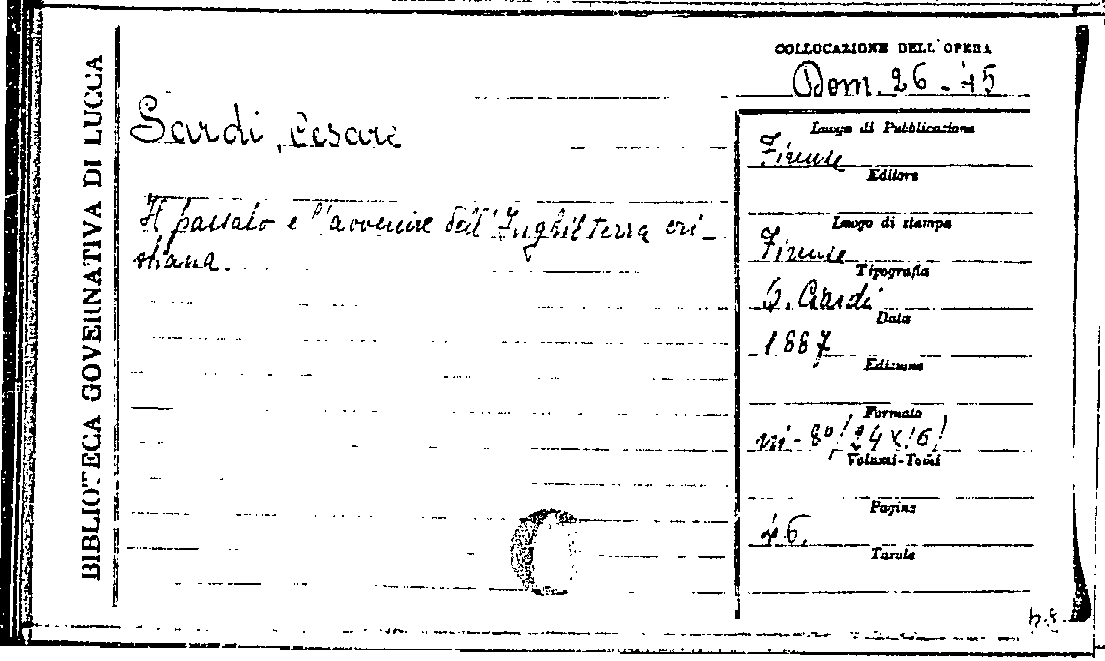 BIBLIOTECA GOVERNATIVA DI LUCCA
COLLOCAZIONE DELL'OPERA
Dom. 26 - 45
Sardi, Cesare
Il passato e l'avvenire dell'Inghilterra cri-
stiana.
Luogo di Pubblicazione
Firenze
Editore
Luogo di stampa
Firenze
Tipografia
Data
1887
Edizione
Formato
in-8°/24x16/
Volumi-Tomi
Pagine
46.
Tavole